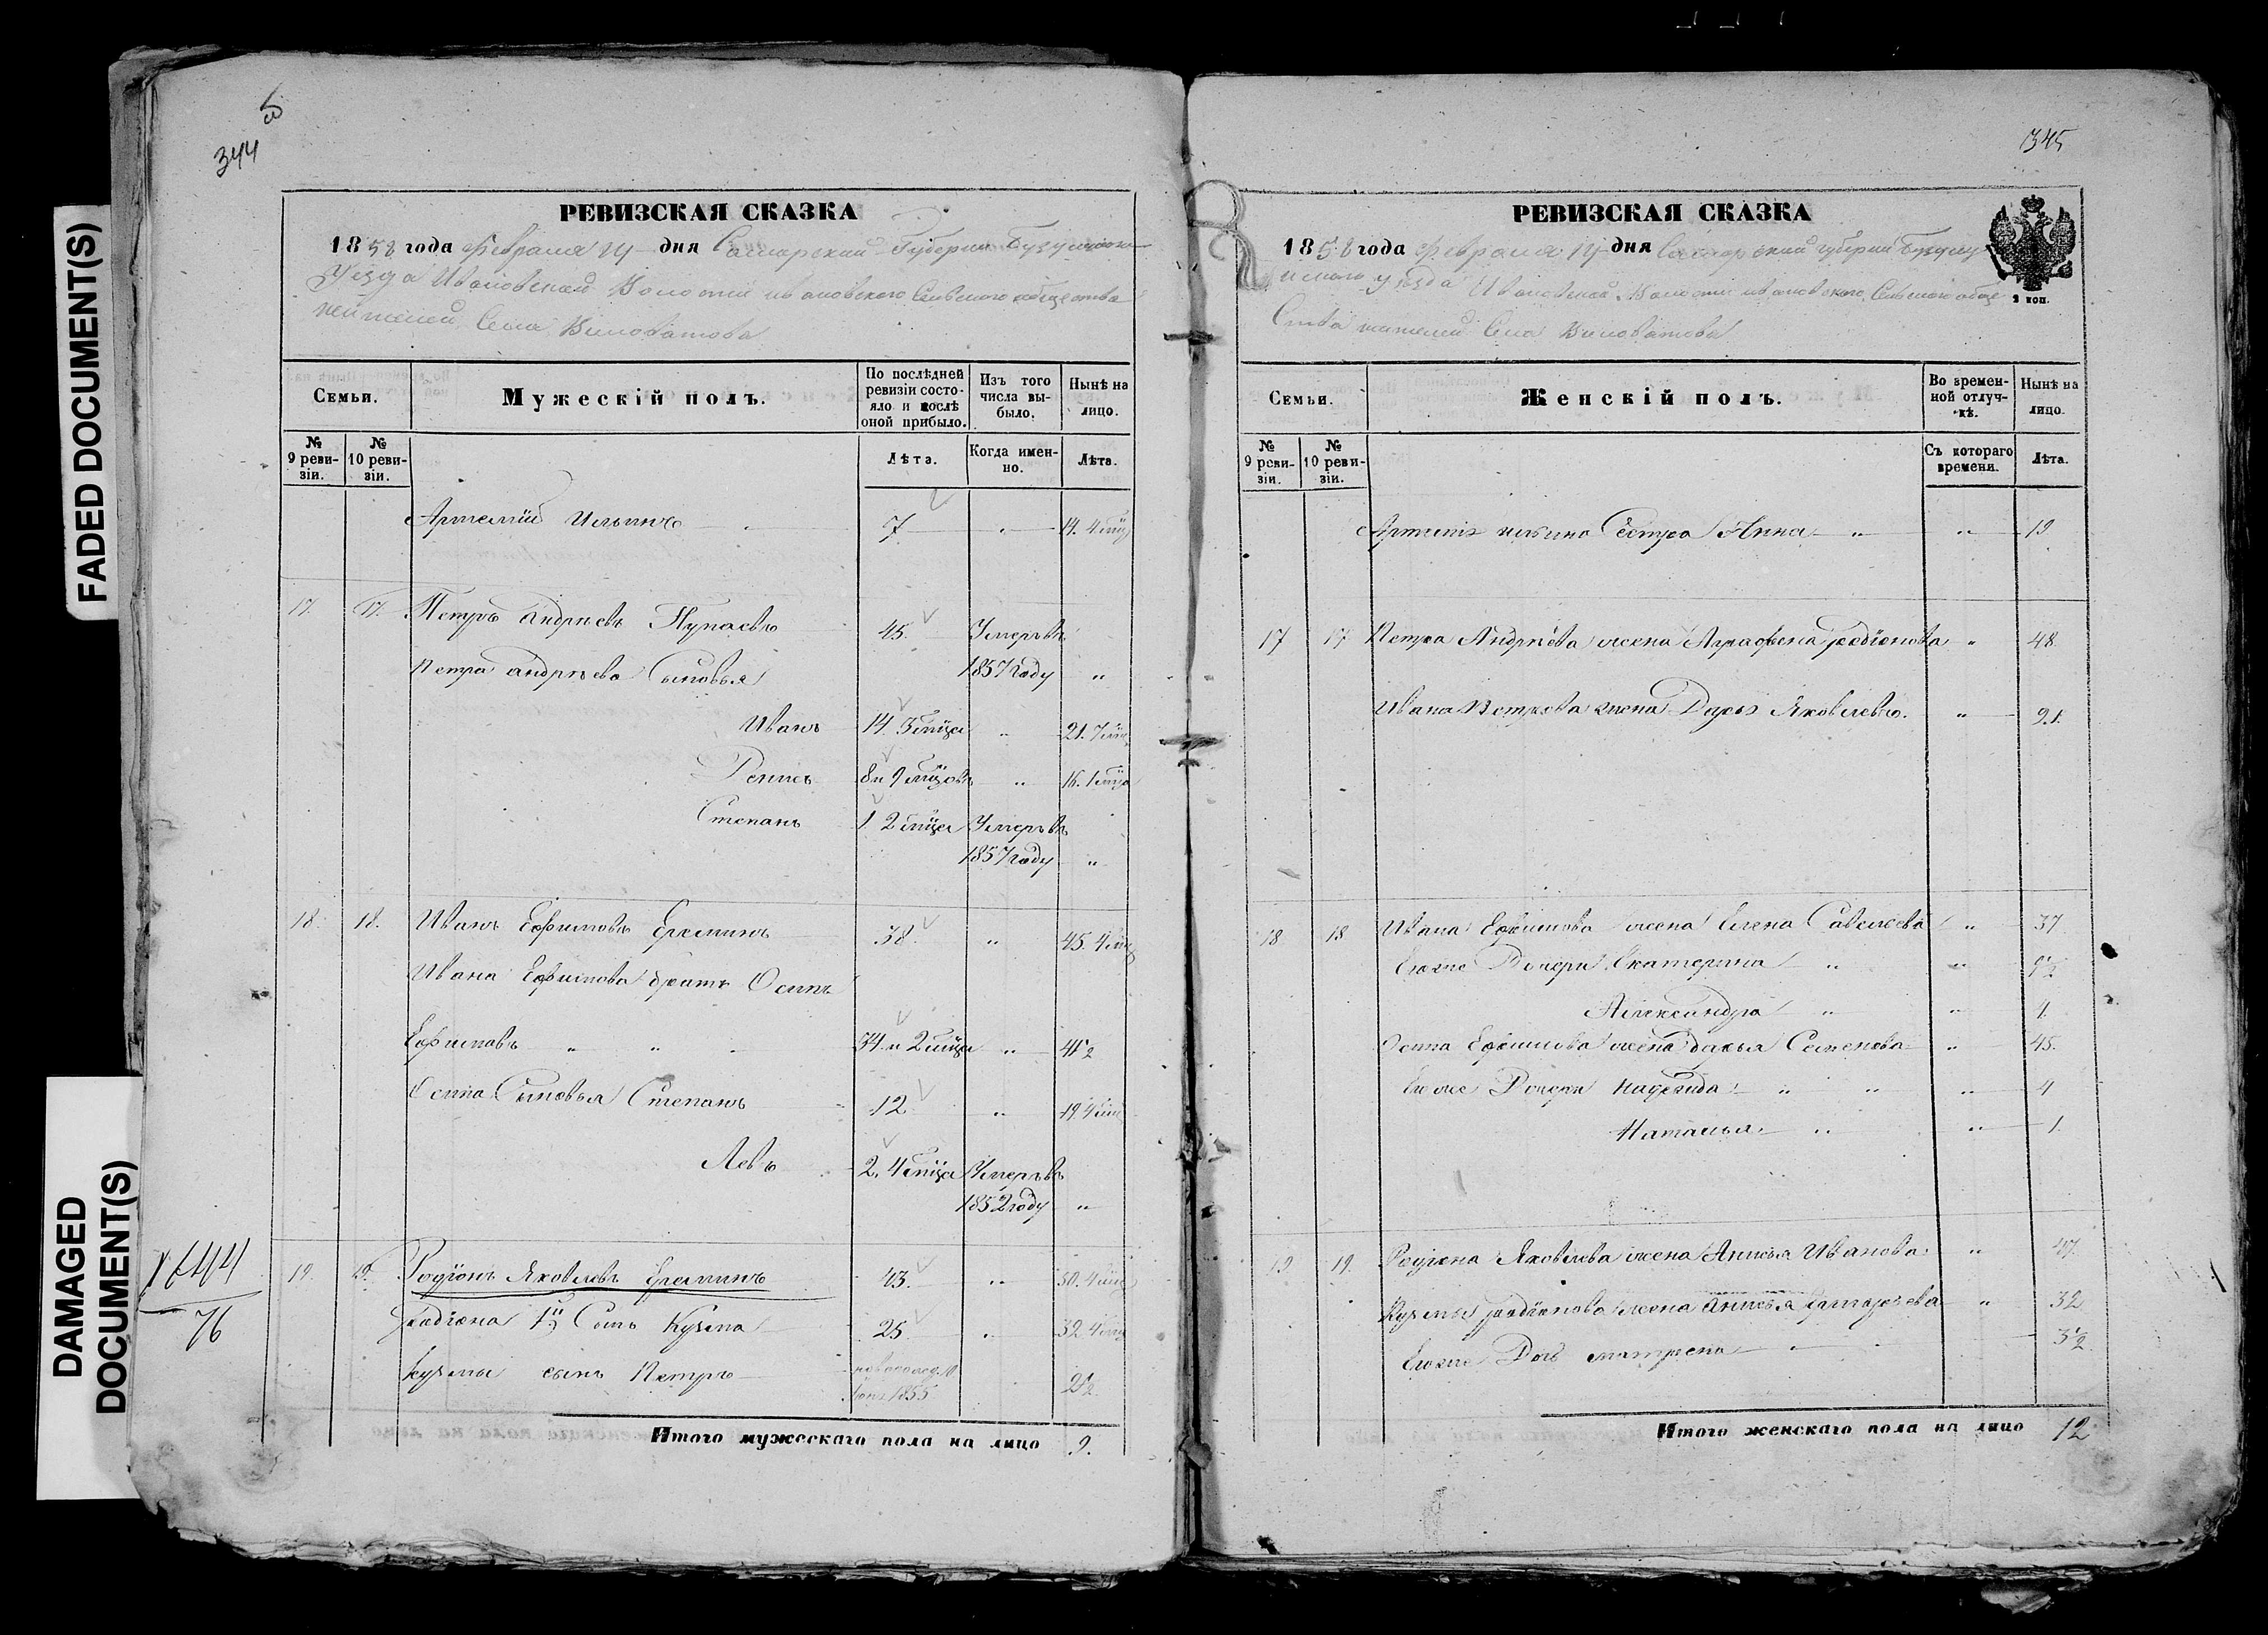 FADED DOCUMENT(S)
DAMAGED
DOCUMENT(S)
5
344
РЕВИЗСКАЯ СКАЗКА
1858 года февраля дня Самарской Губернии Бузулукского
Уезда Ивановской Волости ивановского Сельского общества
жителей Села Виловатова
Семьи.
Мужескій полъ.
По послѣдней ревизіи состояло и послѣ оной прибыло.
Изъ того числа выбыло.
Нынѣ на лицо.
№ 9 ревизіи.
№ 10 ревизіи.
Лѣта.
Когда именно.
Лѣта.
Артемій Ильинъ 7 14. 4 мѣц
17. 17. Петръ Андрѣевъ 45. Умеръ въ
Петра андрѣева Сыновья 1857 году "
Иванъ 14. 3 мѣца " 21. 7 мѣц
Денисъ 8 и 9 мѣцовъ " 16. 1 мѣца
Степанъ 1. 2 мѣца Умеръ въ
1857 году "
18. 18. Иванъ Ефимовъ Ереминъ 38. " 45. 4 мѣц
Ивана Ефимова братъ Осипъ
Ефимовъ " " " 34 и 2 мѣца " 41½
Осипа Сыновья Степанъ 12 " 19. 4 мѣц
Левъ 2. 4 мѣца Умеръ въ
1852 году "
1644
76
19. 19. Родіонъ Яковлевъ Ереминъ 43. " 50. 4 мѣц
Родіона Сынъ Кузма 25 " 32. 4 мѣц
Кузмы сынъ Петръ 1855 2½
Итого мужескаго пола на лицо 9.
345
РЕВИЗСКАЯ СКАЗКА
1858 года февраля дня Самарской губернии Бузулу
кского уезда Ивановской Волости ивановского Сельского обще
ства жителей Села Виловатова
2 коп.
Семьи.
Женскій полъ.
Во временной отлучкѣ.
Нынѣ на лицо.
№ 9 ревизіи.
№ 10 ревизіи.
Съ котораго времени.
Лѣта.
Артемія ильина Сестра Анна " " 19
17 17 Петра Андрѣева жена Аграфена родіонова " 48.
Ивана Петрова жена Дарья Яковлева. " 21.
18 18 Ивана Ефимова жена Елена Савельева " 37
Егоже Дочери Екатерина " " 9½
Александра " " 1.
Осипа Ефимова жена дарья Семенова " 45.
Егоже Дочери Надежда " " " 4
Наталья " " 1.
19 19 Родіона Яковлева жена Анисья Иванова " 47.
Кузмы родіонова жена анисья " 32
Егоже Дочь матрена " " 3½
Итого женскаго пола на лицо 12